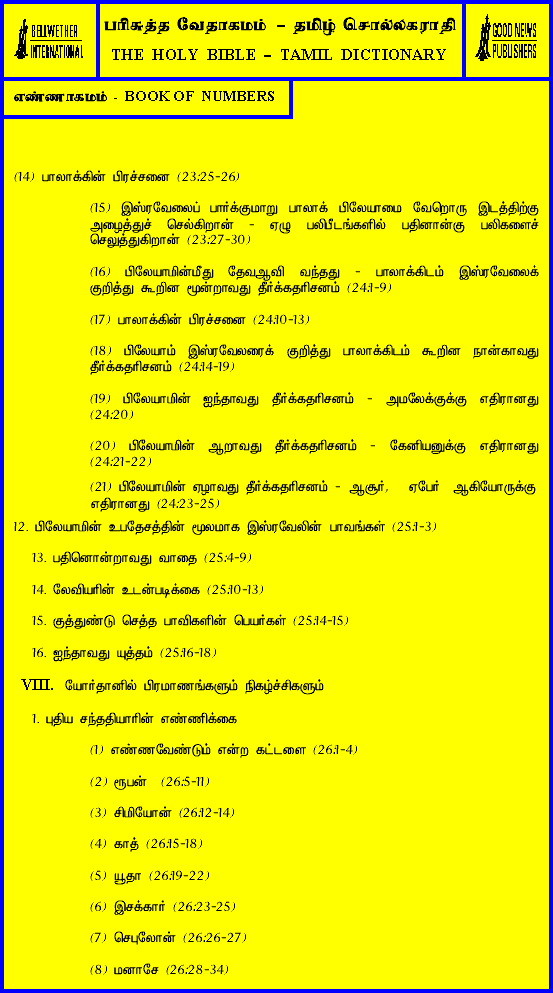 BELLWETHER
INTERNATIONAL
பரிசுத்த வேதாகமம் – தமிழ் சொல்லகராதி
THE HOLY BIBLE – TAMIL DICTIONARY
GOOD NEWS
PUBLISHERS
எண்ணாகமம் - BOOK OF NUMBERS
(14) பாலாக்கின் பிரச்சனை (23:25-26)
(15) இஸ்ரவேலைப் பார்க்குமாறு பாலாக் பிலேயாமை வேறொரு இடத்திற்கு
அழைத்துச் செல்கிறான் - ஏழு பலிபீடங்களில் பதினான்கு பலிகளைச்
செலுத்துகிறான் (23:27-30)
(16) பிலேயாமின்மீது தேவஆவி வந்தது - பாலாக்கிடம் இஸ்ரவேலைக்
குறித்து கூறின மூன்றாவது தீர்க்கதரிசனம் (24:1-9)
(17) பாலாக்கின் பிரச்சனை (24:10-13)
(18) பிலேயாம் இஸ்ரவேலரைக் குறித்து பாலாக்கிடம் கூறின நான்காவது
தீர்க்கதரிசனம் (24:14-19)
(19) பிலேயாமின் ஐந்தாவது தீர்க்கதரிசனம் - அமலேக்குக்கு எதிரானது
(24:20)
(20) பிலேயாமின் ஆறாவது தீர்க்கதரிசனம் - கேனியனுக்கு எதிரானது
(24:21-22)
(21) பிலேயாமின் ஏழாவது தீர்க்கதரிசனம் - ஆசூர், ஏபேர் ஆகியோருக்கு
எதிரானது (24:23-25)
12. பிலேயாமின் உபதேசத்தின் மூலமாக இஸ்ரவேலின் பாவங்கள் (25:1-3)
13. பதினொன்றாவது வாதை (25:4-9)
14. லேவியரின் உடன்படிக்கை (25:10-13)
15. குத்துண்டு செத்த பாவிகளின் பெயர்கள் (25:14-15)
16. ஐந்தாவது யுத்தம் (25:16-18)
VIII. யோர்தானில் பிரமாணங்களும் நிகழ்ச்சிகளும்
1. புதிய சந்ததியாரின் எண்ணிக்கை
(1) எண்ணவேண்டும் என்ற கட்டளை (26:1-4)
(2) ரூபன் (26:5-11)
(3) சிமியோன் (26:12-14)
(4) காத் (26:15-18)
(5) யூதா (26:19-22)
(6) இசக்கார் (26:23-25)
(7) செபுலோன் (26:26-27)
(8) மனாசே (26:28-34)